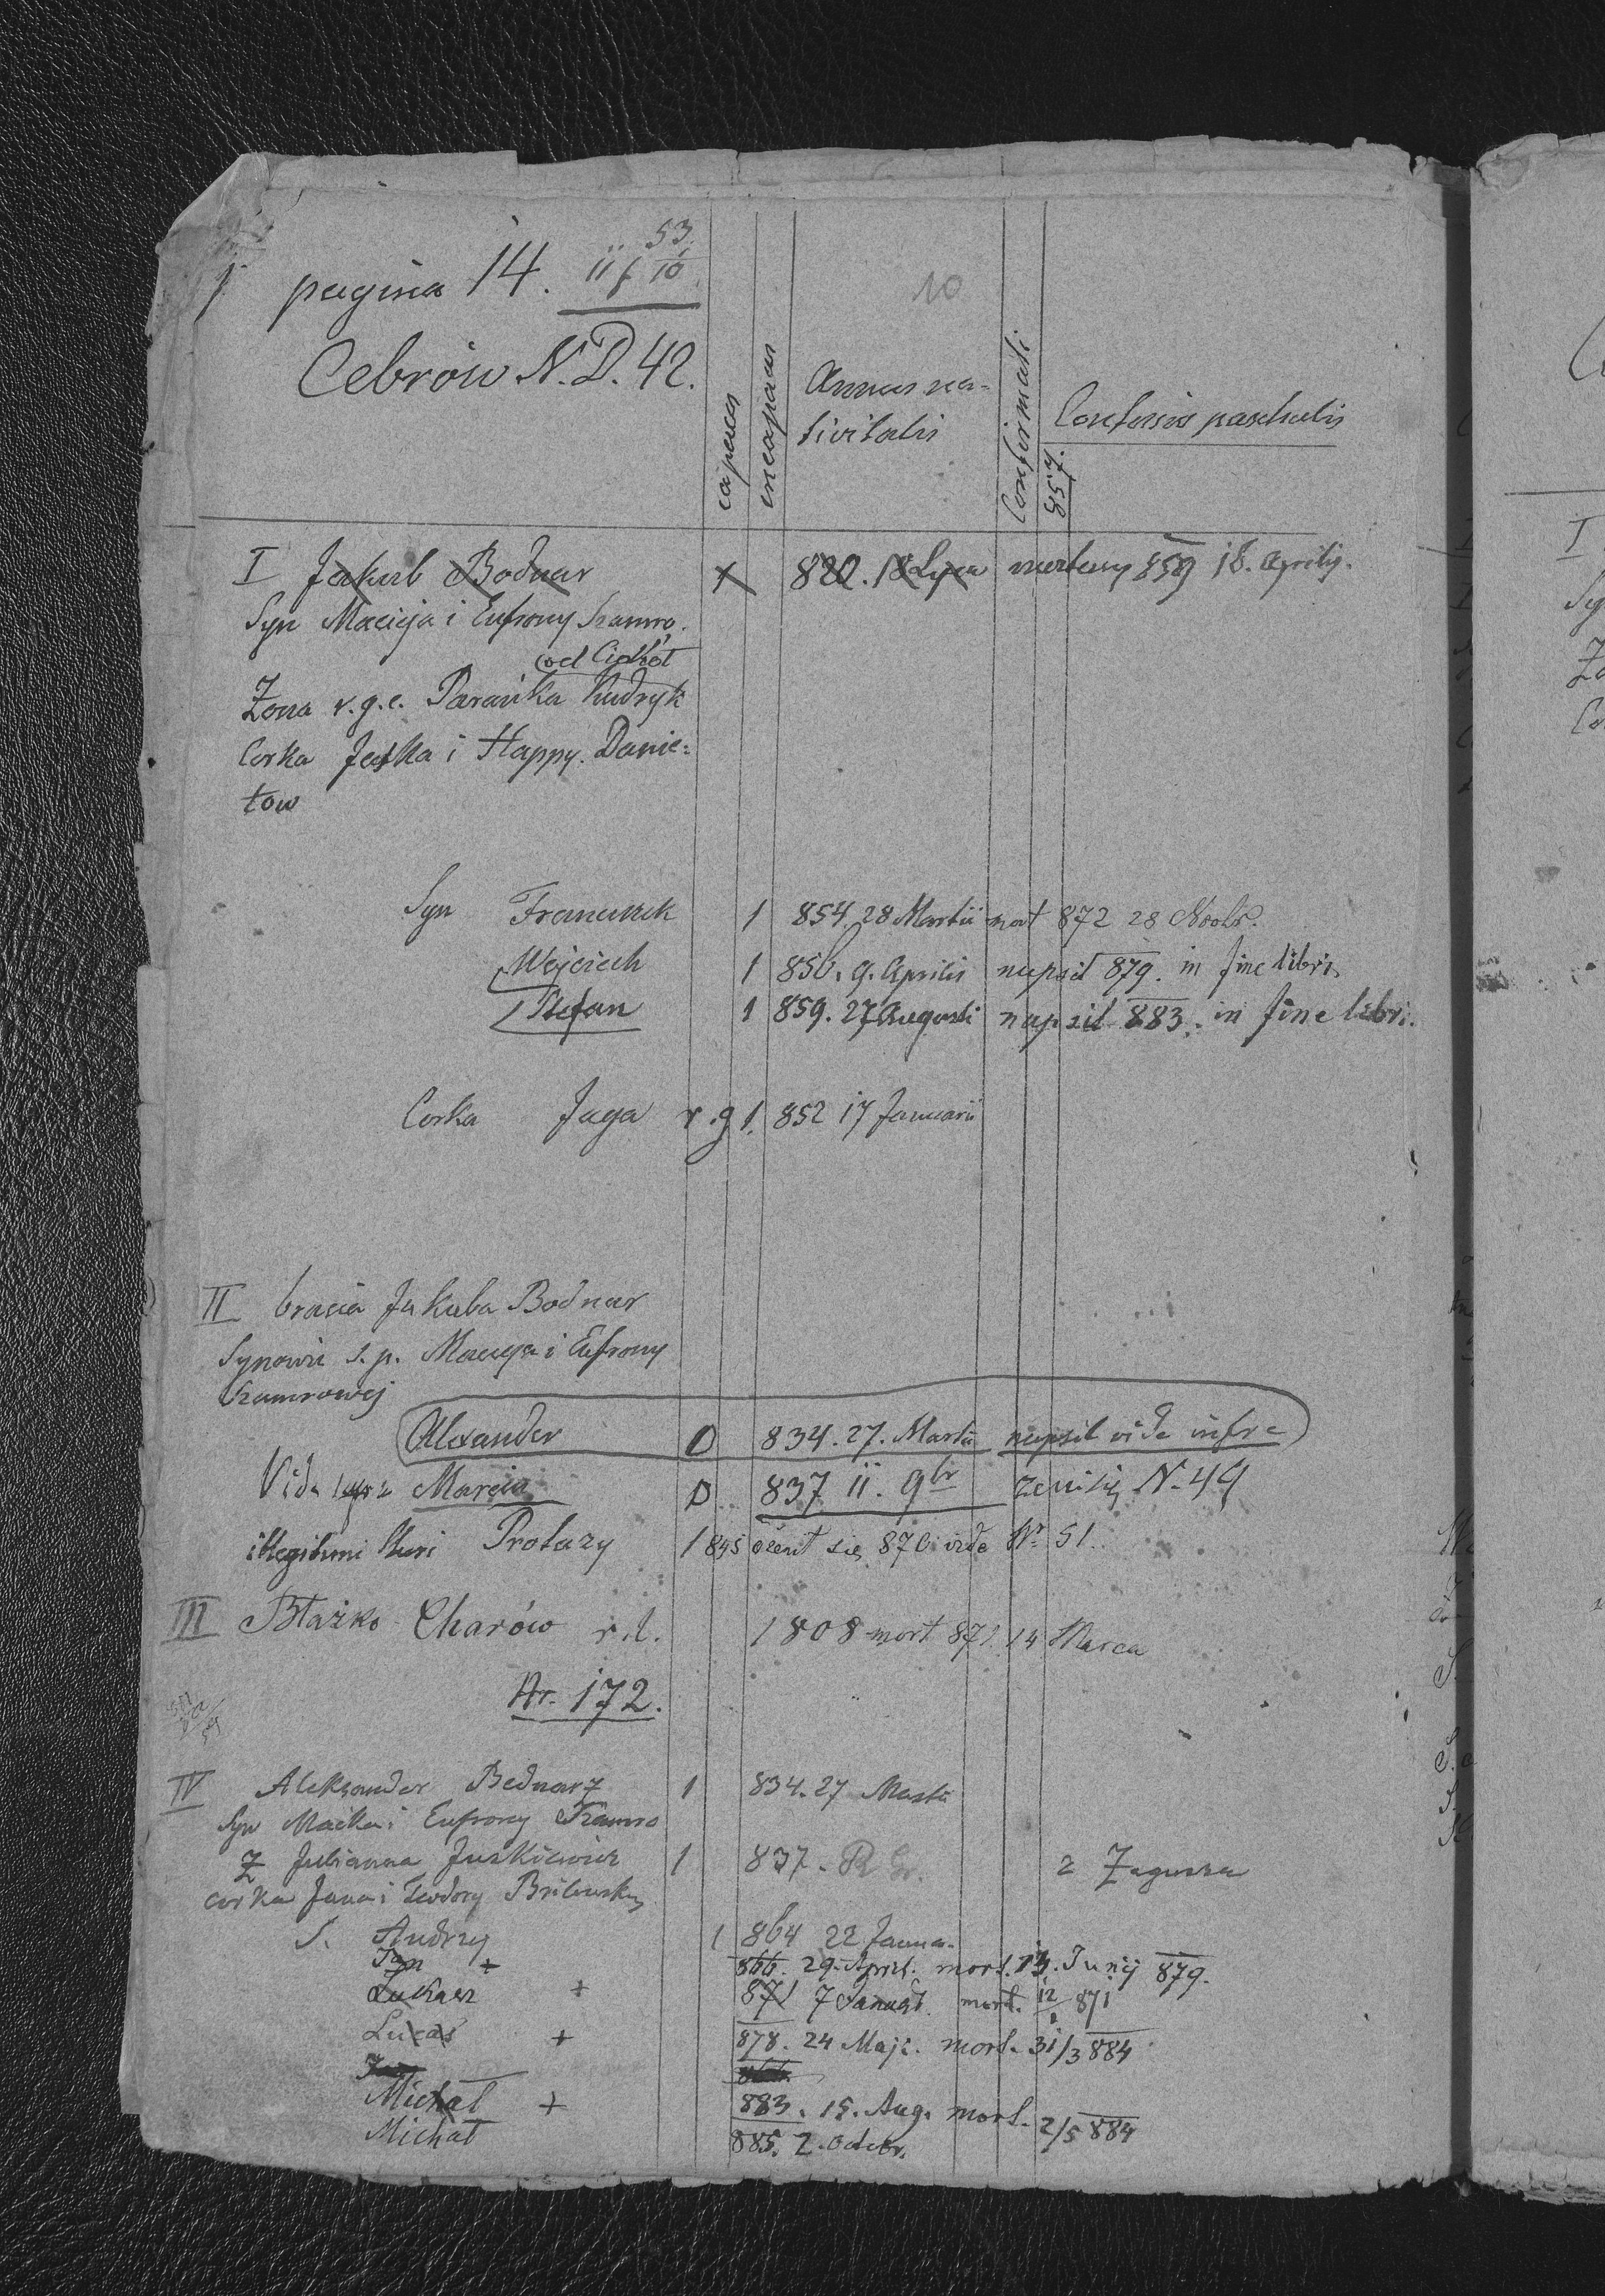 pagina 14.
53.
10
10
Cebrów N. D. 42.
capaces
incapaces
Annus na-
tivitatis
Confirmati
Confessio paschalis
857.
I Jakub Bodnar + 820. 18 Lipca umerłszy 859 18. Aprilis.
Syn Macieja i Eufrony Szamro.
Żona r. g. c. Parańka Kudryk
Corka Jaśka i Happy. Danie-
łow
Syn Franciszek 1 854. 28 Martii mort 872 28 Novbr.
Wojciech 1 856. 9. Aprilis nupsit 879. in fine libri.
Stefan 1 859. 27 Augusti nupsit 883. in fine libri.
Corka Jaga r. g 1. 852 17 Januarii
II bracia Jakuba Bodnar
Synowie s. p. Macieja i Eufrony
Szamrowej
Alexander 0 834. 27. Martii nupsit vide infra
Vide infra Marcin 0 837 11. 9br N. 49
illegitimi thori Protazy 1 845 ożenił się 870 vide Nr 51.
III Błażko Charów r. l. 1808 mort 871. 14 Marca
Nr. 172.
IV Aleksander Bednarz 1 834. 27 Martii
Syn Maćka i Eufrony Szamro
Ż Julianna Juśkiewicz 1 837. R Gr. z Zagurza
corka Jana i Teodory
S. Andrzy 1 864 22 Janua.
Jan + 866. 29. April. mort. 13. Junij 879.
Łukasz + 871 7 Januar. mort. 12/ 871
Lucas + 878. 24 Maji. mort. 31/3 884
Jan
Michał + 883. 15. Aug. mort. 2/5 884
Michał 885. 2. Octobr.